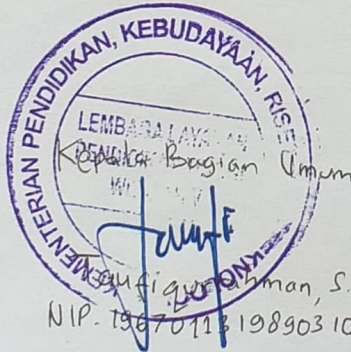 KEMENTERIAN PENDIDIKAN, KEBUDAYAAN, RISE
LEMBAGA LAYANAN
Kepala Bagian Umum
Taufiqurrahman, S.
NIP. 19670113 198903 10